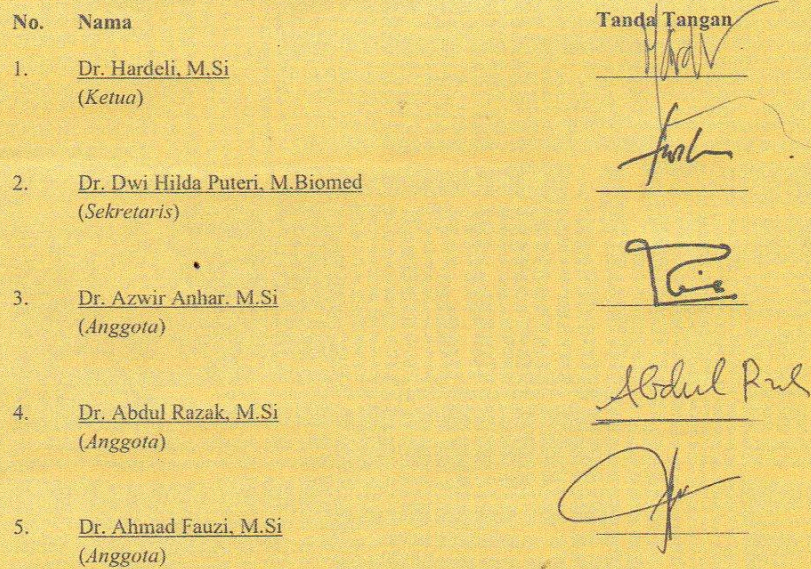 No. Nama Tanda Tangan
1. Dr. Hardeli, M.Si
(Ketua)
2. Dr. Dwi Hilda Puteri, M.Biomed
(Sekretaris)
3. Dr. Azwir Anhar. M.Si
(Anggota)
Abdul
4. Dr. Abdul Razak, M.Si
(Anggota)
5. Dr. Ahmad Fauzi, M.Si
(Anggota)